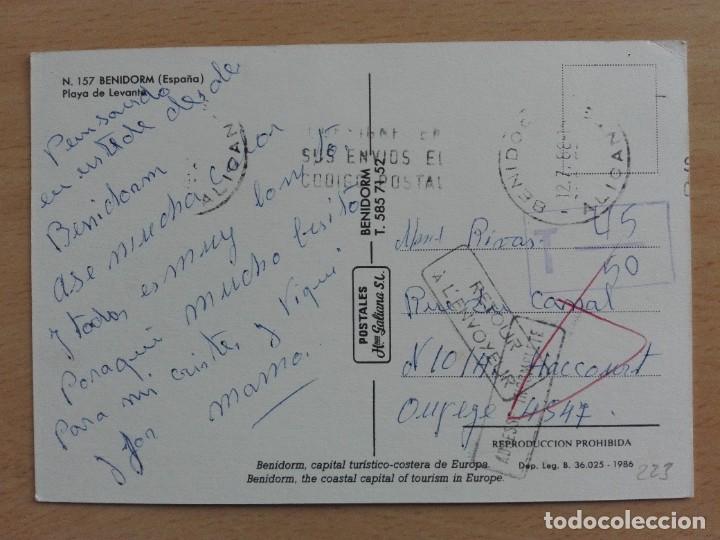 N. 157 BENIDORM (España)
Playa de Levante
Pensando
en ustede desde
Benidorm
ase mucha calor
y todo es muy
Poraqui mucho besito
Para mi cristes y Viqui
y for
mama.
SUS ENVIOS EL
CODIGO POSTAL
ALICAN
BENIDOR
12.7.88
ALICAN
BENIDORM
T. 585 71 52
POSTALES
Hnos Galiana S.L.
T
45
50
Mme Rivas
Rue du Canal
N 10 / Haccourt
Oupege 4547.
RETOUR
À L'ENVOYEUR
REPRODUCCION PROHIBIDA
Benidorm, capital turístico-costera de Europa.
Benidorm, the coastal capital of tourism in Europe.
Dep. Leg. B. 36.025 - 1986
223
todocoleccion
todocoleccion.net